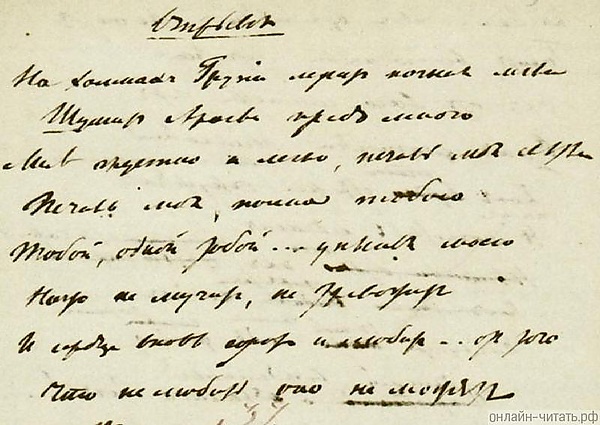 Отрывок
На холмах Грузии лежит ночная мгла
Шумит Арагва предо мною
Мне грустно и легко, печаль моя светла
Печаль моя полна тобою
Тобой, одной тобой... унынья моего
Ничто не мучит, не тревожит
И сердце вновь горит и любит... от того
Что не любить оно не может
онлайн-читать.рф